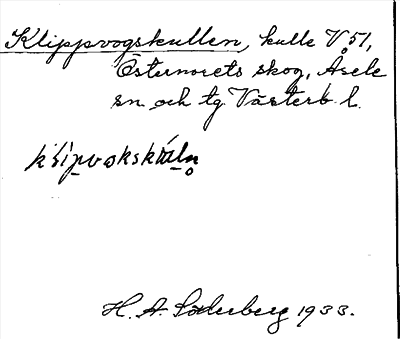 Klippvogskullen, kulle V 51,
Östernorets skog, Åsele
sn och tg Västerb l.
klipvokskúaln̥
H. A. Söderberg 1933.